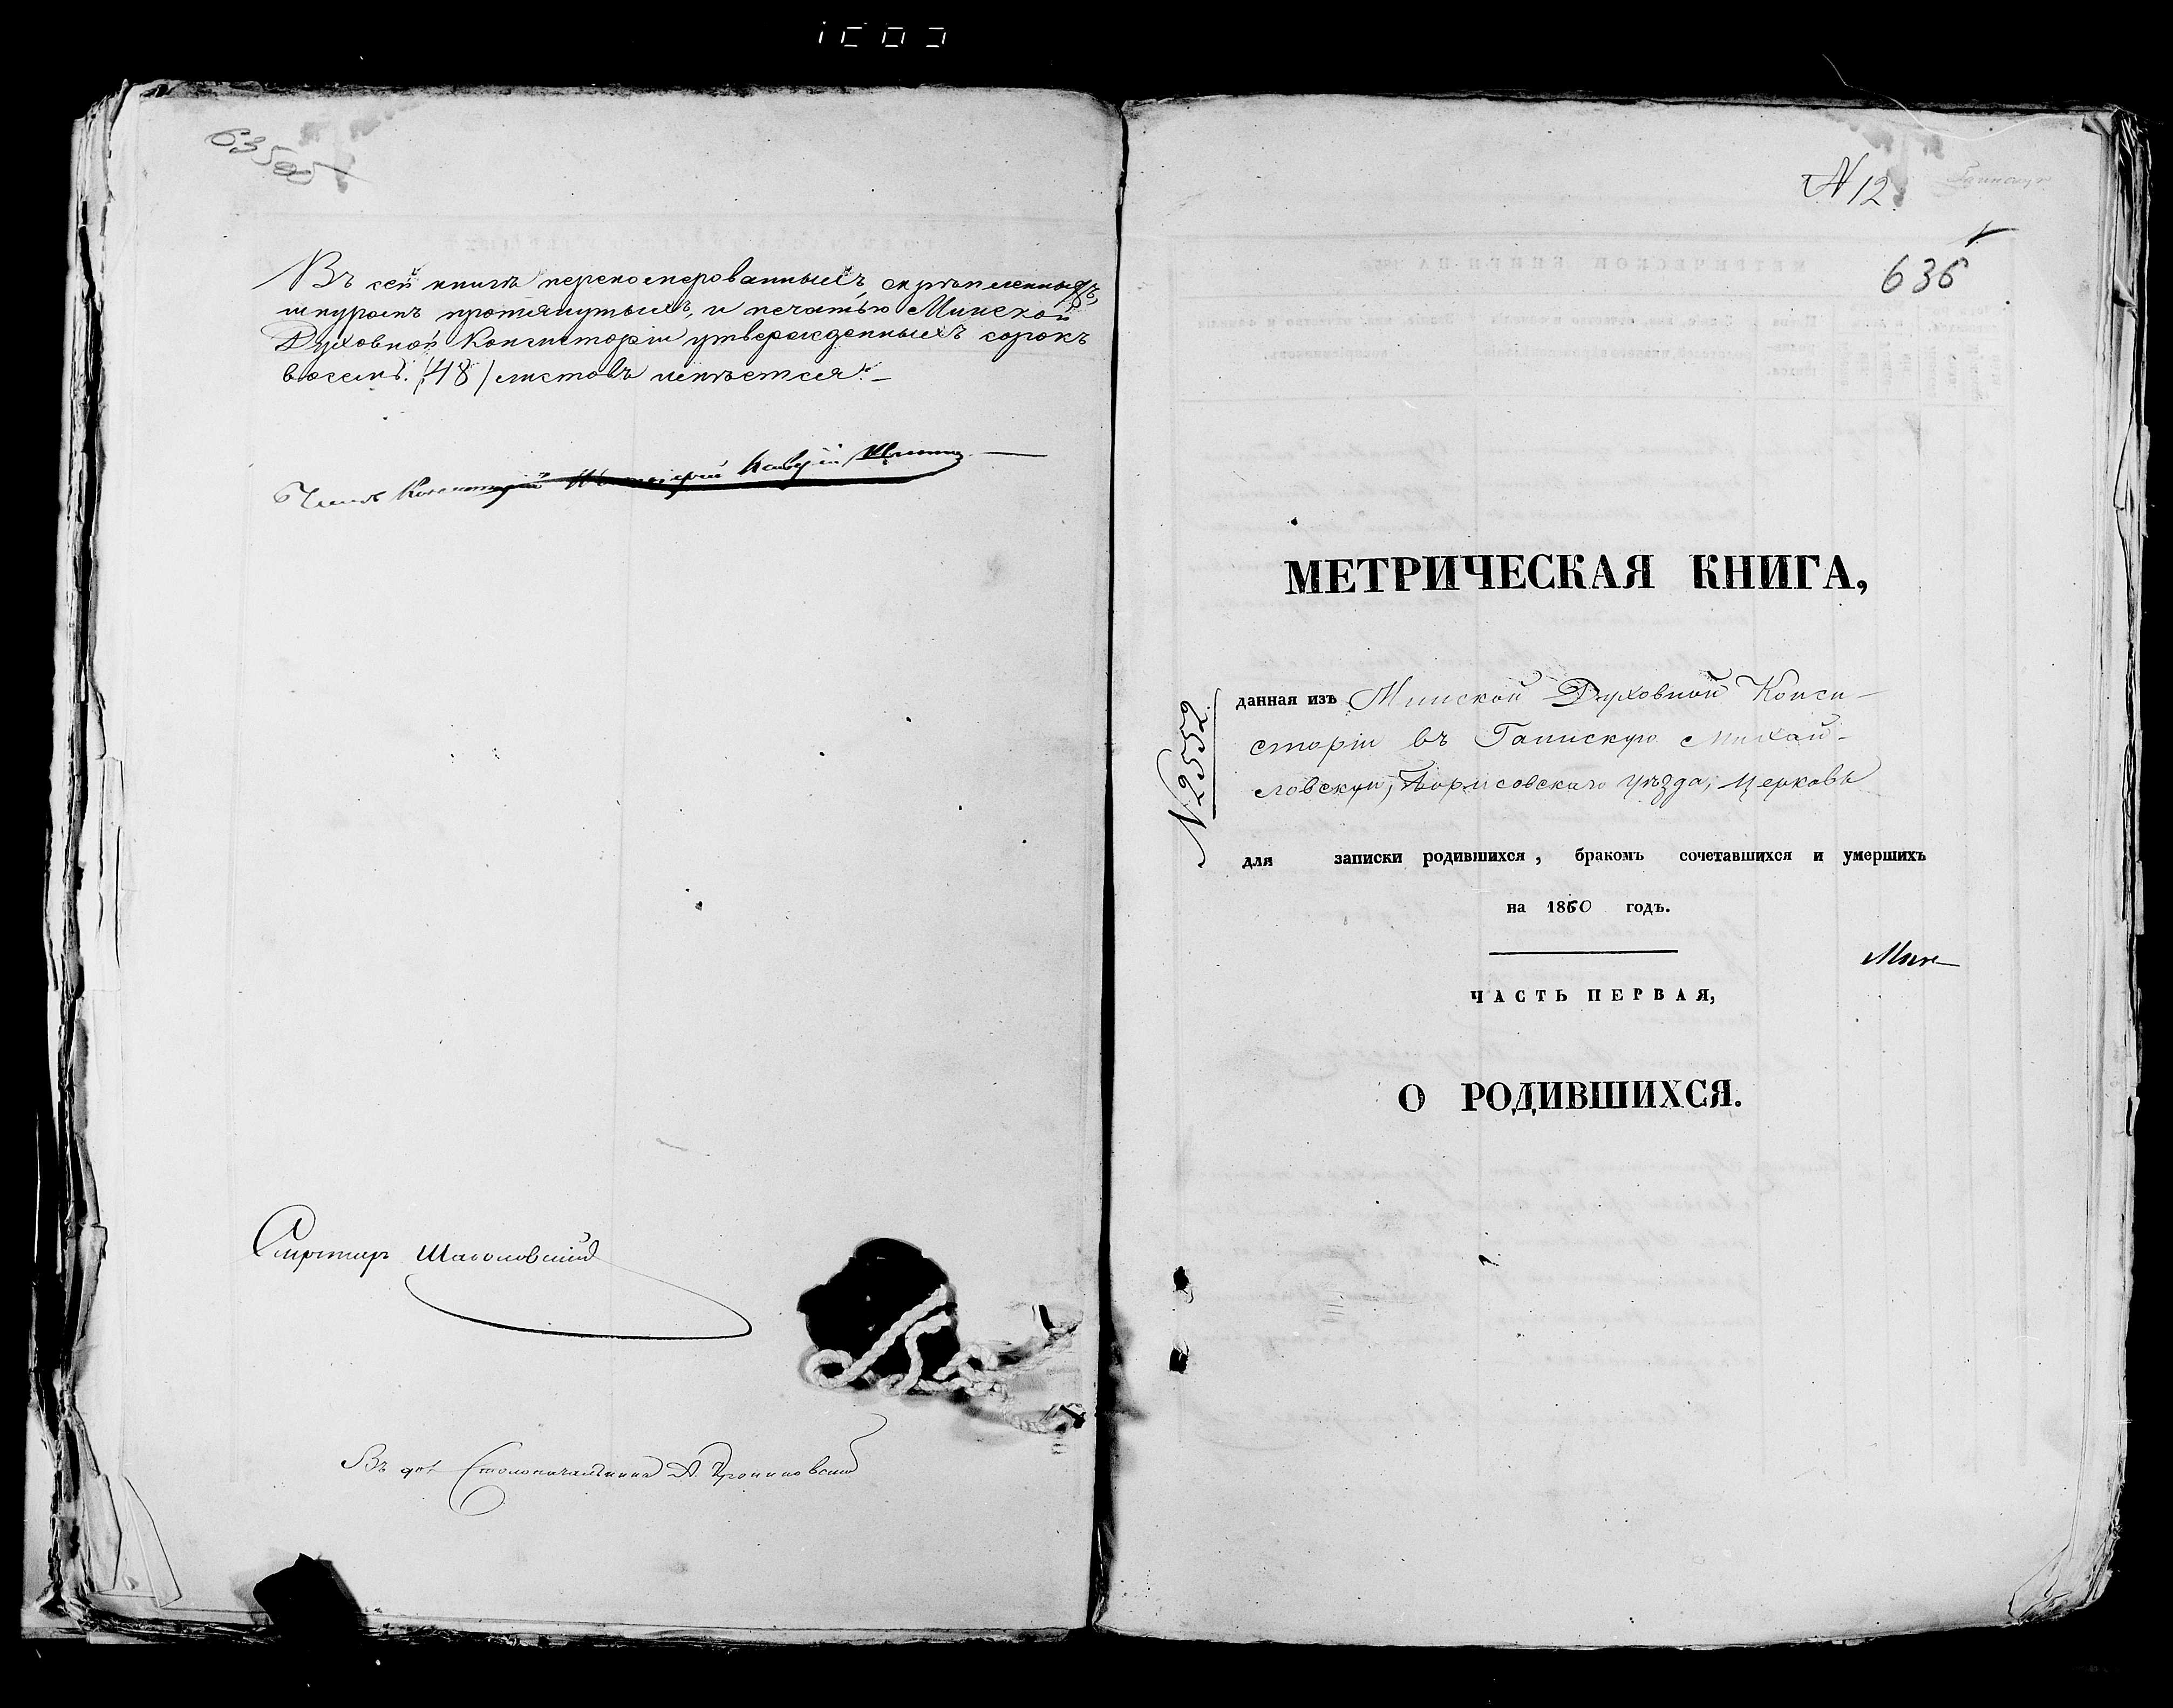 635об
Въ сей книгѣ перенумерованныхъ, скрѣпленныхъ,
шнуромъ протянутыхъ, и печатью Минской
Духовной Консисторіи утвержденныхъ сорокъ
восемь (48) листовъ имѣется. —
Членъ Консисторіи
Секретарь
Въ дол. Столоначальника А.
N 12.
636
МЕТРИЧЕСКАЯ КНИГА,
N 2552
данная изъ Минской Духовной Конси-
сторіи въ Гаинскую Михай-
ловскую, Борисовскаго уѣзда, Церковь
для записки родившихся, бракомъ сочетавшихся и умершихъ
на 1860 годъ.
ЧАСТЬ ПЕРВАЯ,
О РОДИВШИХСЯ.